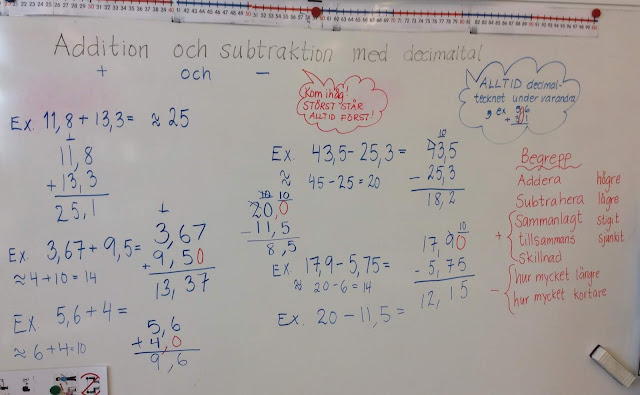 Addition och subtraktion med decimaltal
+ och −
Kom ihåg!
STÖRST STÅR
ALLTID FÖRST!
ALLTID decimal-
tecknet under varandra
Ex. 11,8 + 13,3 = ≈ 25
1
11,8
+ 13,3
25,1
Ex. 3,67 + 9,5 =
≈ 4 + 10 = 14
1
3,67
+ 9,50
13,37
Ex. 5,6 + 4 =
≈ 6 + 4 = 10
5,6
+ 4,0
9,6
Ex. 43,5 − 25,3 =
≈ 45 − 25 = 20
10
43,5
− 25,3
18,2
10 10
20,0
− 11,5
8,5
Ex. 17,9 − 5,75 =
≈ 20 − 6 = 14
10
17,90
− 5,75
12,15
Ex. 20 − 11,5 =
Begrepp
Addera högre
Subtrahera lägre
+ Sammanlagt stigit
tillsammans sjunkit
skillnad
− hur mycket längre
hur mycket kortare